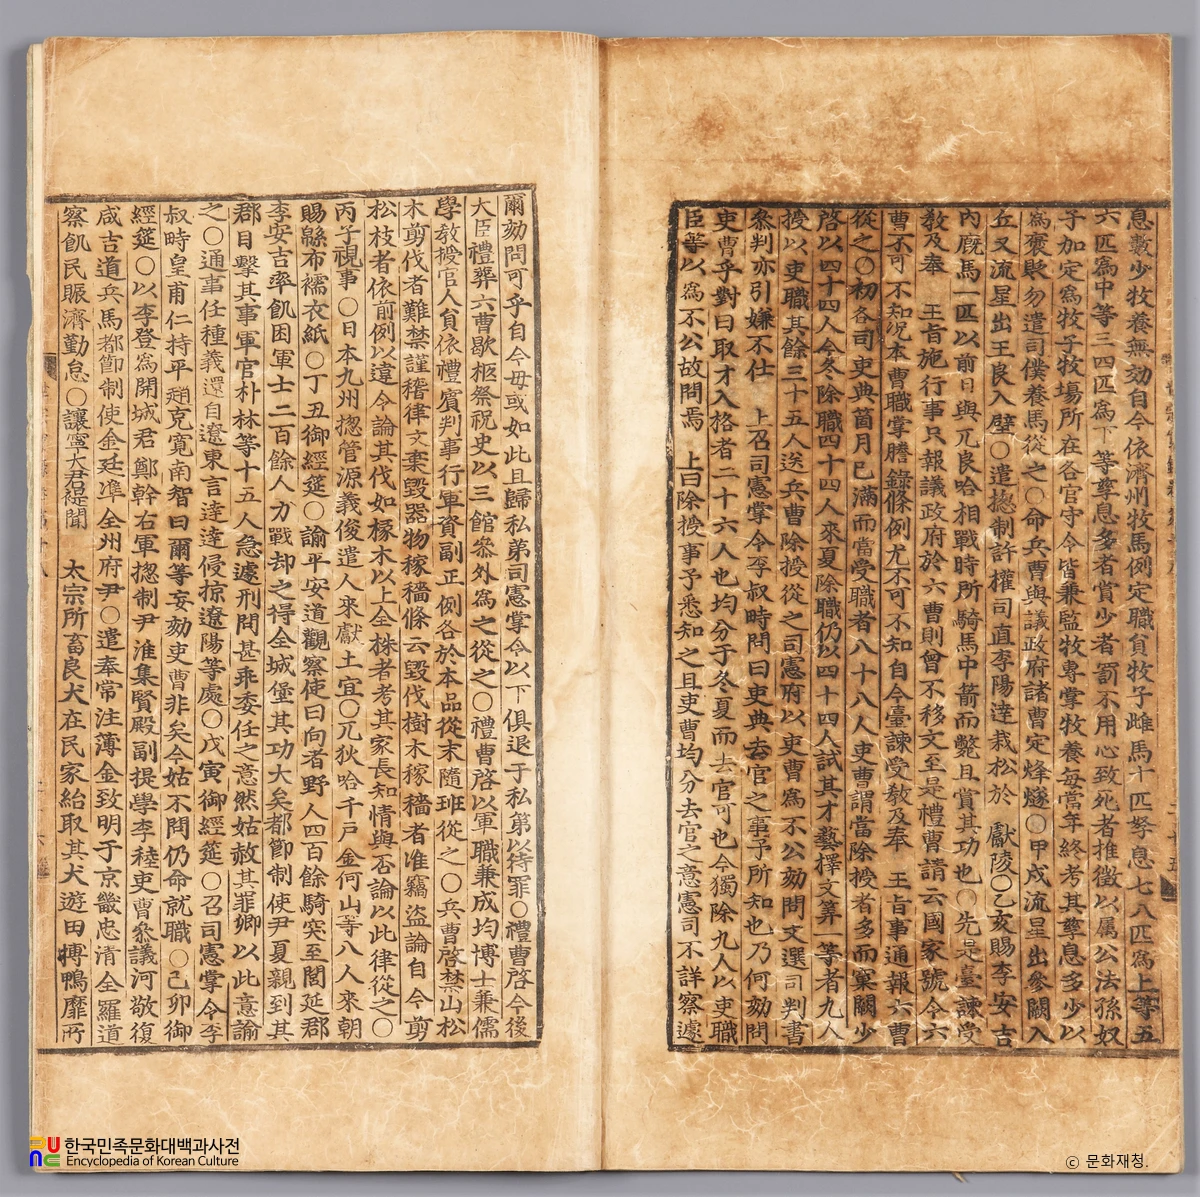 息數少牧養無効自今依濟州牧馬例定職貧牧子雌馬十匹孳息七八匹爲上等五
六匹爲中等三四匹爲下等孳息多者賞少者罰不用心致死者推徵以屬公法孫奴
子加定爲牧子牧場所在各官守令皆兼監牧專掌牧養每當年終考其孳息多少以
爲褒貶勿遣司僕養馬從之○命兵曹與議政府諸曹定烽燧○甲戌流星出參闕入
丘又流星出王良入壁○遣摠制許權司直李陽達栽松於 獻陵○乙亥賜李安吉
內廐馬一匹以前日與兀良哈相戰時所騎馬中箭而斃且賞其功也○先是臺諫受
敎及奉 王旨施行事只報議政府於六曹則曾不移文至是禮曹請云國家號令六
曹不可不知况本曹職掌謄錄條例尤不可不知自今臺諫受敎及奉 王旨事通報六曹
從之○初各司吏典箇月已滿而當受職者八十八人吏曹謂當除授者多而窠闕少
啓以四十四人今冬除職四十四人來夏除職仍以四十四人試其才藝擇文筭一等者九人
授以吏職其餘三十五人送兵曹除授從之司憲府以吏曹爲不公劾問文選司判書
參判亦引嫌不仕 上召司憲掌令李叔時問曰吏典去官之事予所知也乃何劾問
吏曹乎對曰取才入格者二十六人也均分于冬夏而去官可也今獨除九人以吏職
臣等以爲不公故問焉 上曰除授事予悉知之且吏曹均分去官之意憲司不詳察遽
爾劾問可乎自今毋或如此且歸私第司憲掌令以下俱退于私第以待罪○禮曹啓今後
大臣禮葬六曹歇柩祭祝史以三館參外爲之從之○禮曹啓以軍職兼成均博士兼儒
學敎授官人貧依禮賓判事行軍資副正例各於本品從末隨班從之○兵曹啓禁山松
木剪伐者難禁謹稽律文棄毀器物稼穡條云毀伐樹木稼穡者准竊盜論自今剪
松枝者依前例以違令論其伐如椽木以上全株者考其家長知情與否論以此律從之○
丙子視事○日本九州摠管源義俊遣人來獻土宜○兀狄哈千戶金何山等八人來朝
賜緜布襦衣紙○丁丑御經筵○諭平安道觀察使曰向者野人四百餘騎突至閭延郡
李安吉率飢困軍士二百餘人力戰却之得全城堡其功大矣都節制使尹夏親到其
郡目擊其事軍官朴林等十五人急遽刑問甚乖委任之意然姑赦其罪卿以此意諭
之○通事任種義還自遼東言達達侵掠遼陽等處○戊寅御經筵○召司憲掌令李
叔時皇甫仁持平趙克寬南智曰爾等妄劾吏曹非矣今姑不問仍命就職○己卯御
經筵○以李登爲開城君鄭幹右軍摠制尹淮集賢殿副提學李稑吏曹參議河敬復
咸吉道兵馬都節制使金廷雋全州府尹○遣奉常注薄金致明于京畿忠淸全羅道
察飢民賑濟勤怠○讓寧大君禔聞 太宗所畜良犬在民家紿取其犬遊田搏鴨靡所
한국민족문화대백과사전
Encyclopedia of Korean Culture
ⓒ 문화재청.